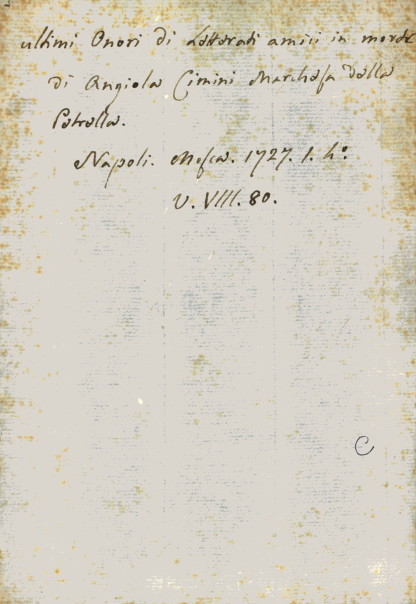 ultimi Onori di Letterati amici in morte
di Angiola Cimini Marchesa Della
Petrella.
Napoli. Mosca. 1727. 1. 4.º
V. VIII. 80.
C